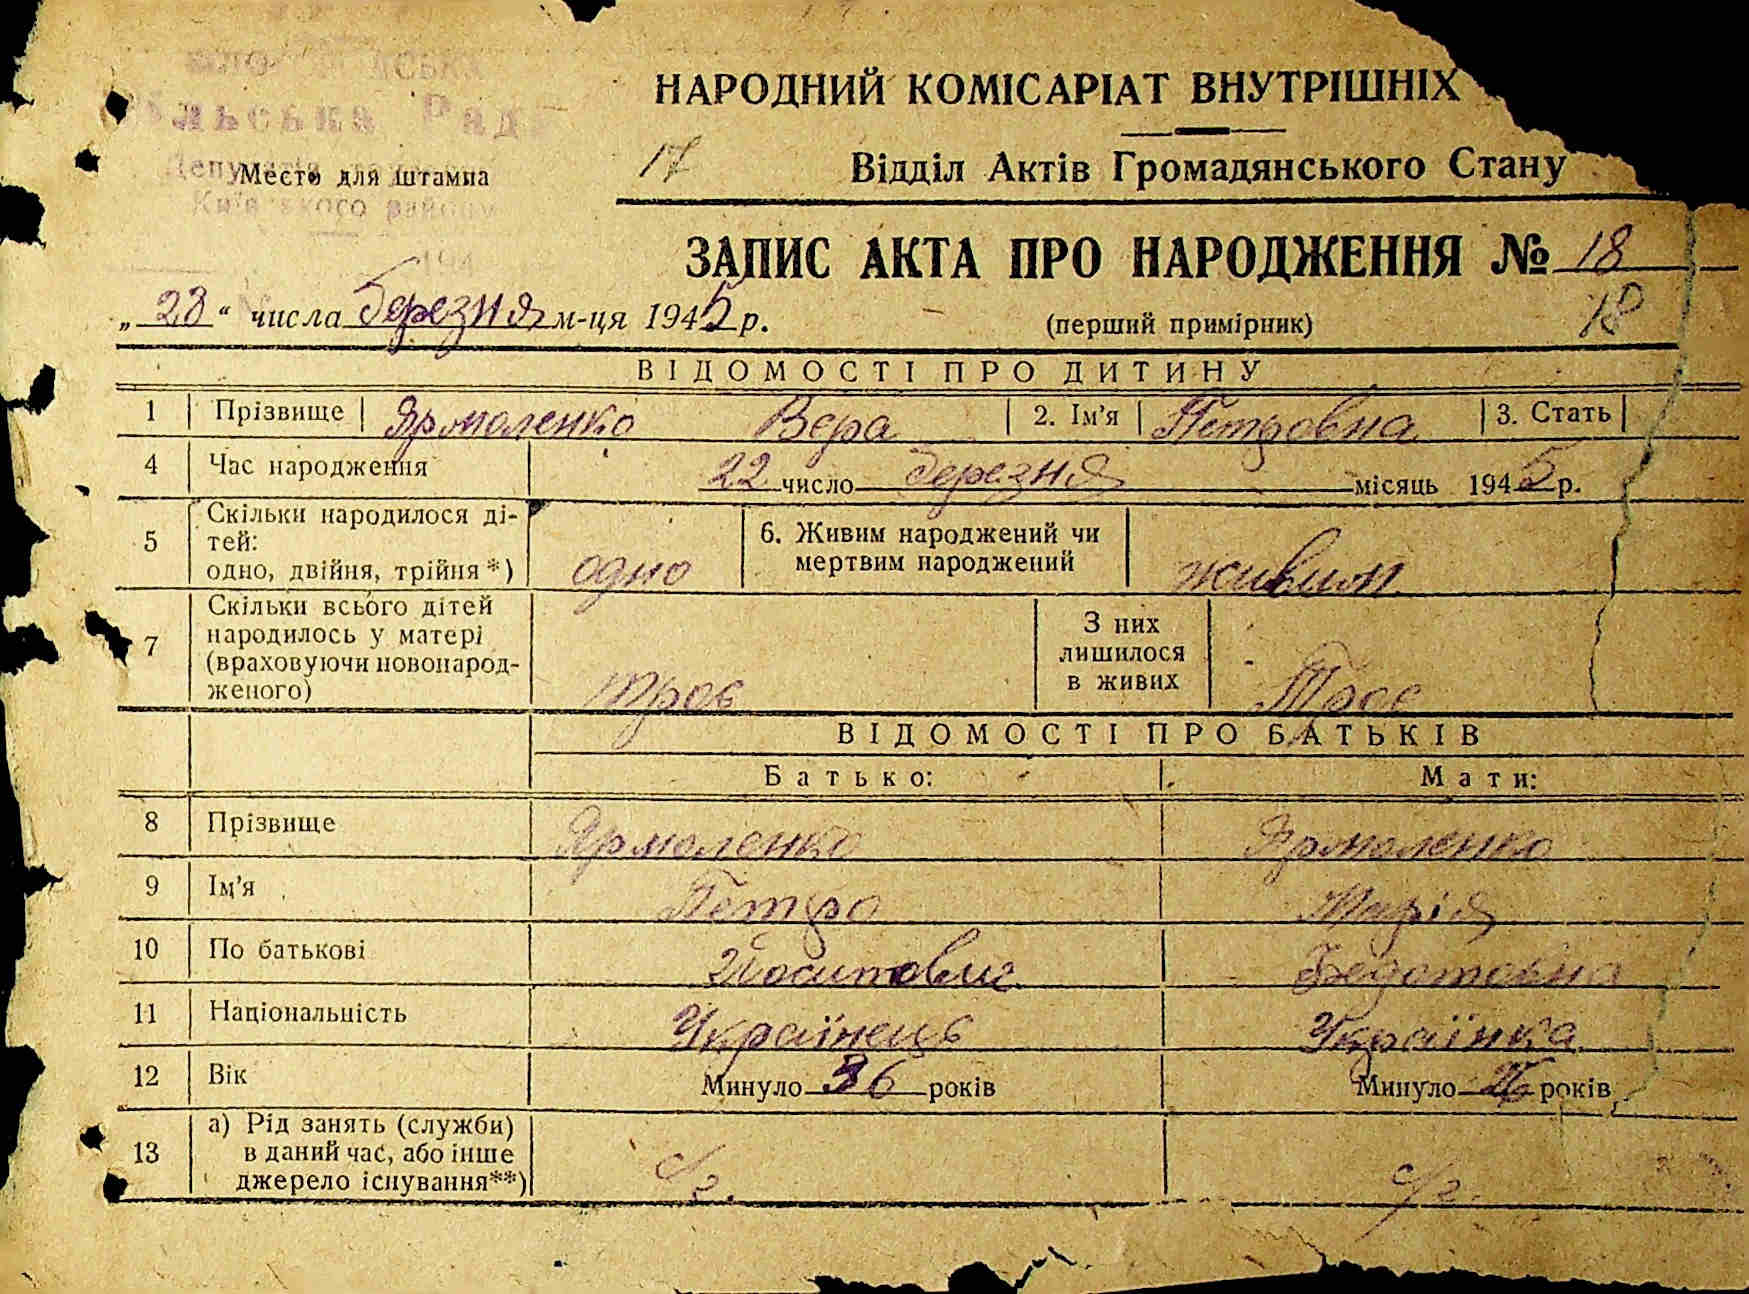 НАРОДНИЙ КОМІСАРІАТ ВНУТРІШНІХ
17 Відділ Актів Громадянського Стану
Рад
Место для штампа
Київського району
194
ЗАПИС АКТА ПРО НАРОДЖЕННЯ № 18
„28“ числа березня м-ця 1945 р.
(перший примірник) 18
ВІДОМОСТІ ПРО ДИТИНУ
1 Прізвище Ярмоленко Вєра 2. Ім'я Петровна 3. Стать
4 Час народження 22 число березня місяць 1945 р.
5 Скільки народилося ді-
тей:
одно, двійня, трійня*) одно 6. Живим народжений чи
мертвим народжений живим
7 Скільки всього дітей
народилось у матері
(враховуючи новонарод-
женого) троє З них
лишилося
в живих Троє
ВІДОМОСТІ ПРО БАТЬКІВ
Батько: Мати:
8 Прізвище Ярмоленко Ярмоленко
9 Ім'я Петро Марія
10 По батькові Йосипович Федотовна
11 Національність Українець Українка
12 Вік Минуло 36 років Минуло 26 років
13 а) Рід занять (служби)
в даний час, або інше
джерело існування**) с/г. с/г.